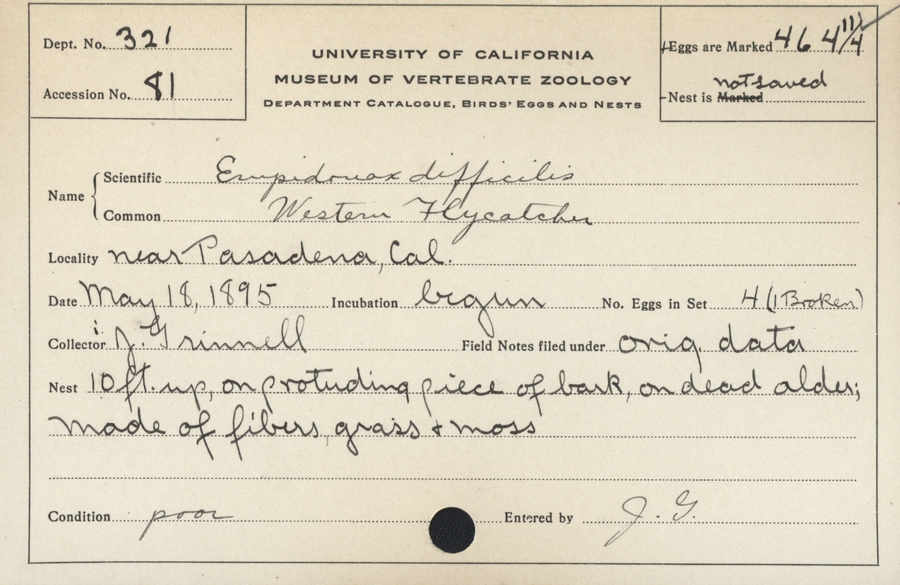 Dept. No. 321
Accession No. 81
UNIVERSITY OF CALIFORNIA
MUSEUM OF VERTEBRATE ZOOLOGY
DEPARTMENT CATALOGUE, BIRDS' EGGS AND NESTS
Eggs are Marked 464 11/4
not saved
Nest is Marked
Name
Scientific Empidonax difficilis
Common Western Flycatcher
Locality near Pasadena, Cal.
Date May 18, 1895 Incubation begun No. Eggs in Set 4 (1 Broken)
Collector J. Grinnell Field Notes filed under orig. data
Nest 10 ft. up, on protuding piece of bark, on dead alder;
made of fibers, grass & moss
Condition poor Entered by J. G.